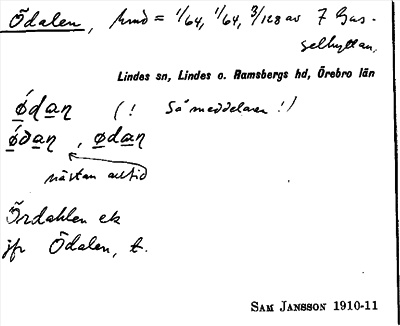 Ödalen, hmd = 1/64, 1/64, 3/128 av 7 Gus-
selhyttan,
Lindes sn, Lindes o. Ramsbergs hd, Örebro län
ǿdaƞ (! Så meddelaren !)
ǿðaƞ, ødaƞ
nästan alltid
Ördahlen ek
jfr Ödalen, t.
SAM JANSSON 1910-11